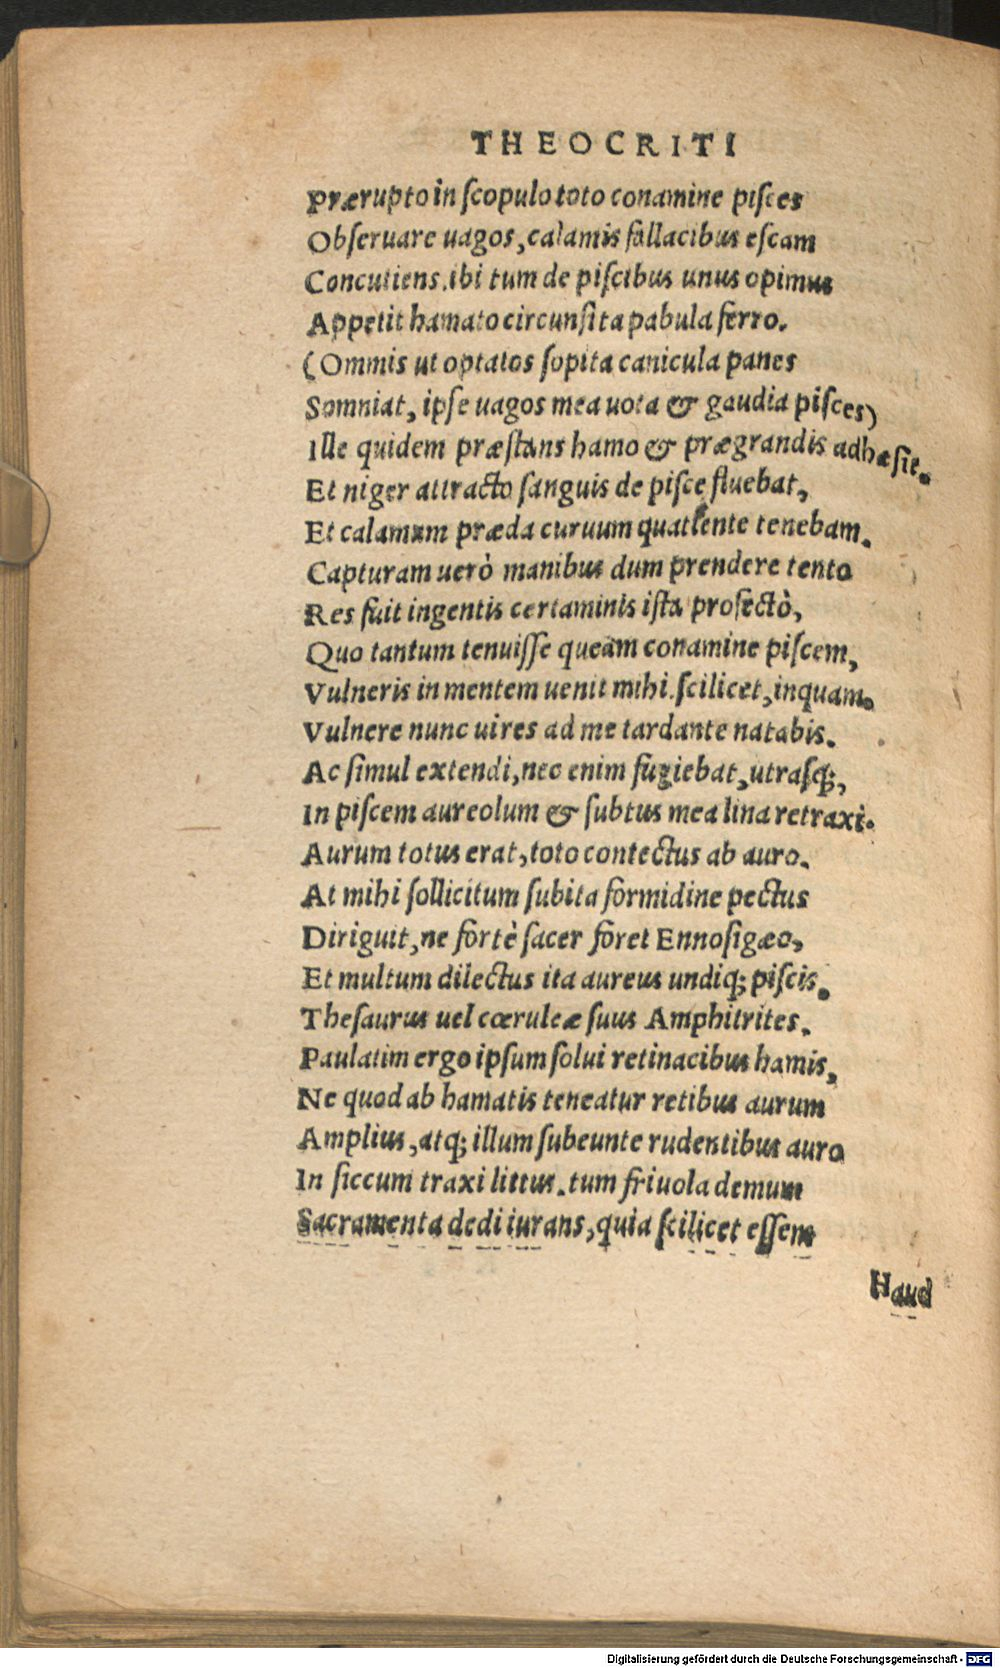 THEOCRITI
Prærupto in ſcopulo toto conamine piſces
Obſeruare uagos, calamis fallacibus eſcam
Concutiens. ibi tum de piſcibus unus opimus
Appetit hamato circunſita pabula ferro.
(Ommis ut optatos ſopita canicula panes
Somniat, ipſe uagos mea uota & gaudia piſces)
Ille quidem præſtans hamo & prægrandis adhæſit.
Et niger attracto ſanguis de piſce fluebat,
Et calamum præda curuum quatiente tenebam.
Capturam uerò manibus dum prendere tento
Res fuit ingentis certaminis iſta profectò,
Quo tantum tenuiſſe queam conamine piſcem,
Vulneris in mentem uenit mihi. ſcilicet, inquam.
Vulnere nunc uires ad me tardante natabis.
Ac ſimul extendi, nec enim fugiebat, utraſq;,
In piſcem aureolum & ſubtus mea lina retraxi.
Aurum totus erat, toto contectus ab auro.
At mihi ſollicitum ſubita formidine pectus
Diriguit, ne fortè ſacer foret Ennoſigæo,
Et multum dilectus ita aureus undiq; piſcis.
Theſaurus uel cœruleæ ſuus Amphitrites.
Paulatim ergo ipſum ſolui retinacibus hamis,
Ne quod ab hamatis teneatur retibus aurum
Amplius, atq; illum ſubeunte rudentibus auro
In ſiccum traxi littus. tum friuola demum
Sacramenta dedi iurans, quia ſcilicet eſſem
Haud
Digitalisierung gefördert durch die Deutsche Forschungsgemeinschaft - DFG